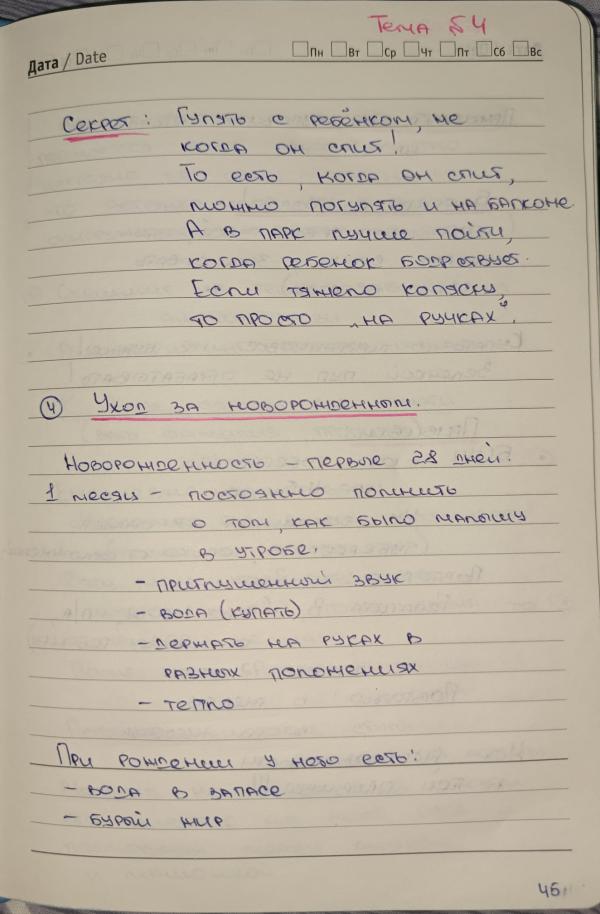 Тема №4
Дата / Date
Пн Вт Ср Чт Пт Сб Вс
Секрет: Гулять с ребёнком, не
когда он спит!
То есть, когда он спит,
можно погулять и на балконе.
А в парк лучше пойти,
когда ребенок бодрствует.
Если тяжело коляску,
то просто „на ручках“.
④ Уход за новорожденным.
Новорожденность – первые 28 дней.
1 месяц – постоянно помнить
о том, как было малышу
в утробе.
– приглушенный звук
– вода (купать)
– держать на руках в
разных положениях
– тепло
При рождении у него есть:
– вода в запасе
– бурый жир
46